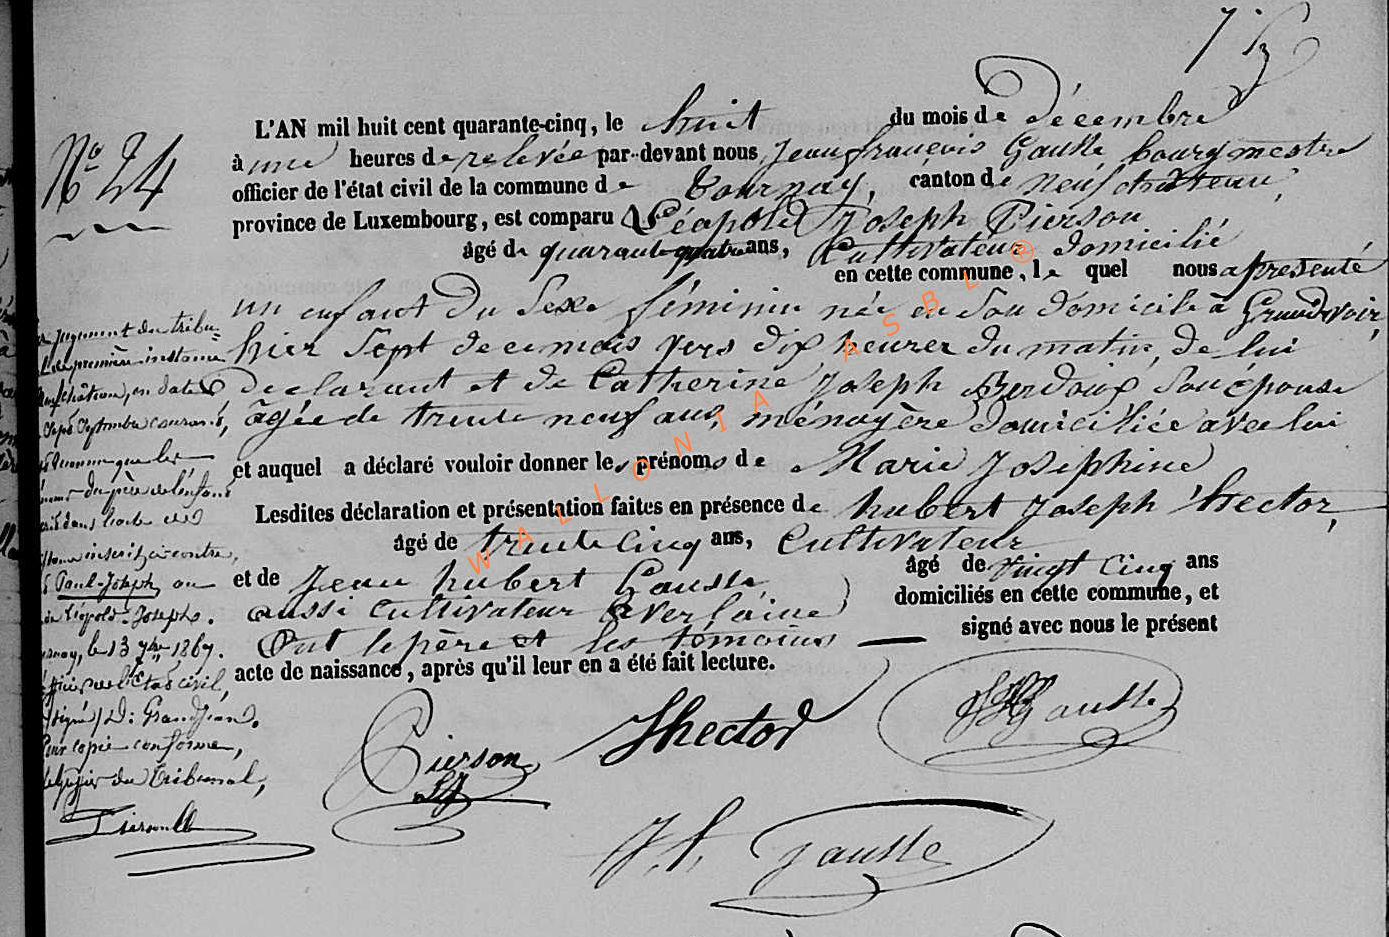 N° 24
L'AN mil huit cent quarante-cinq, le huit du mois de décembre
à une heures de relevée par-devant nous Jean françois Gausse bourgmestre
officier de l'état civil de la commune de Tournay, canton de neufchateau,
province de Luxembourg, est comparu Léopold Joseph Pierson
âgé de quarante quatre ans, Cultivateur domicilié
en cette commune, le quel nous a présenté
un enfant du sexe féminin née en son domicile à Grandvoir,
hier sept de ce mois vers dix heures du matin, de lui
déclarant et de Catherine Joseph son épouse
âgée de trente neuf ans, ménagère domiciliée avec lui
et auquel a déclaré vouloir donner les prénoms de Marie Josephine
Lesdites déclaration et présentation faites en présence de hubert Joseph hector,
âgé de trente cinq ans, Cultivateur
et de Jean hubert Gausse âgé de vingt cinq ans
aussi cultivateur à verlaine domiciliés en cette commune, et
Ont le père et les témoins signé avec nous le présent
acte de naissance, après qu'il leur en a été fait lecture.
jugement du tribu-
première instance
en date
Septembre courant,
que les
du père de l'enfant
dans l'acte
inscrit ci-contre,
Paul-Joseph, au
Léopold-Joseph.
le 13 7bre 1867.
l'état civil,
signé) D: Grandjean.
Pour copie conforme,
Le greffier du Tribunal,
Pierson
LJ
Jhector
JF Gausse
J. h. Gausse
WALLONIA ASBL ®